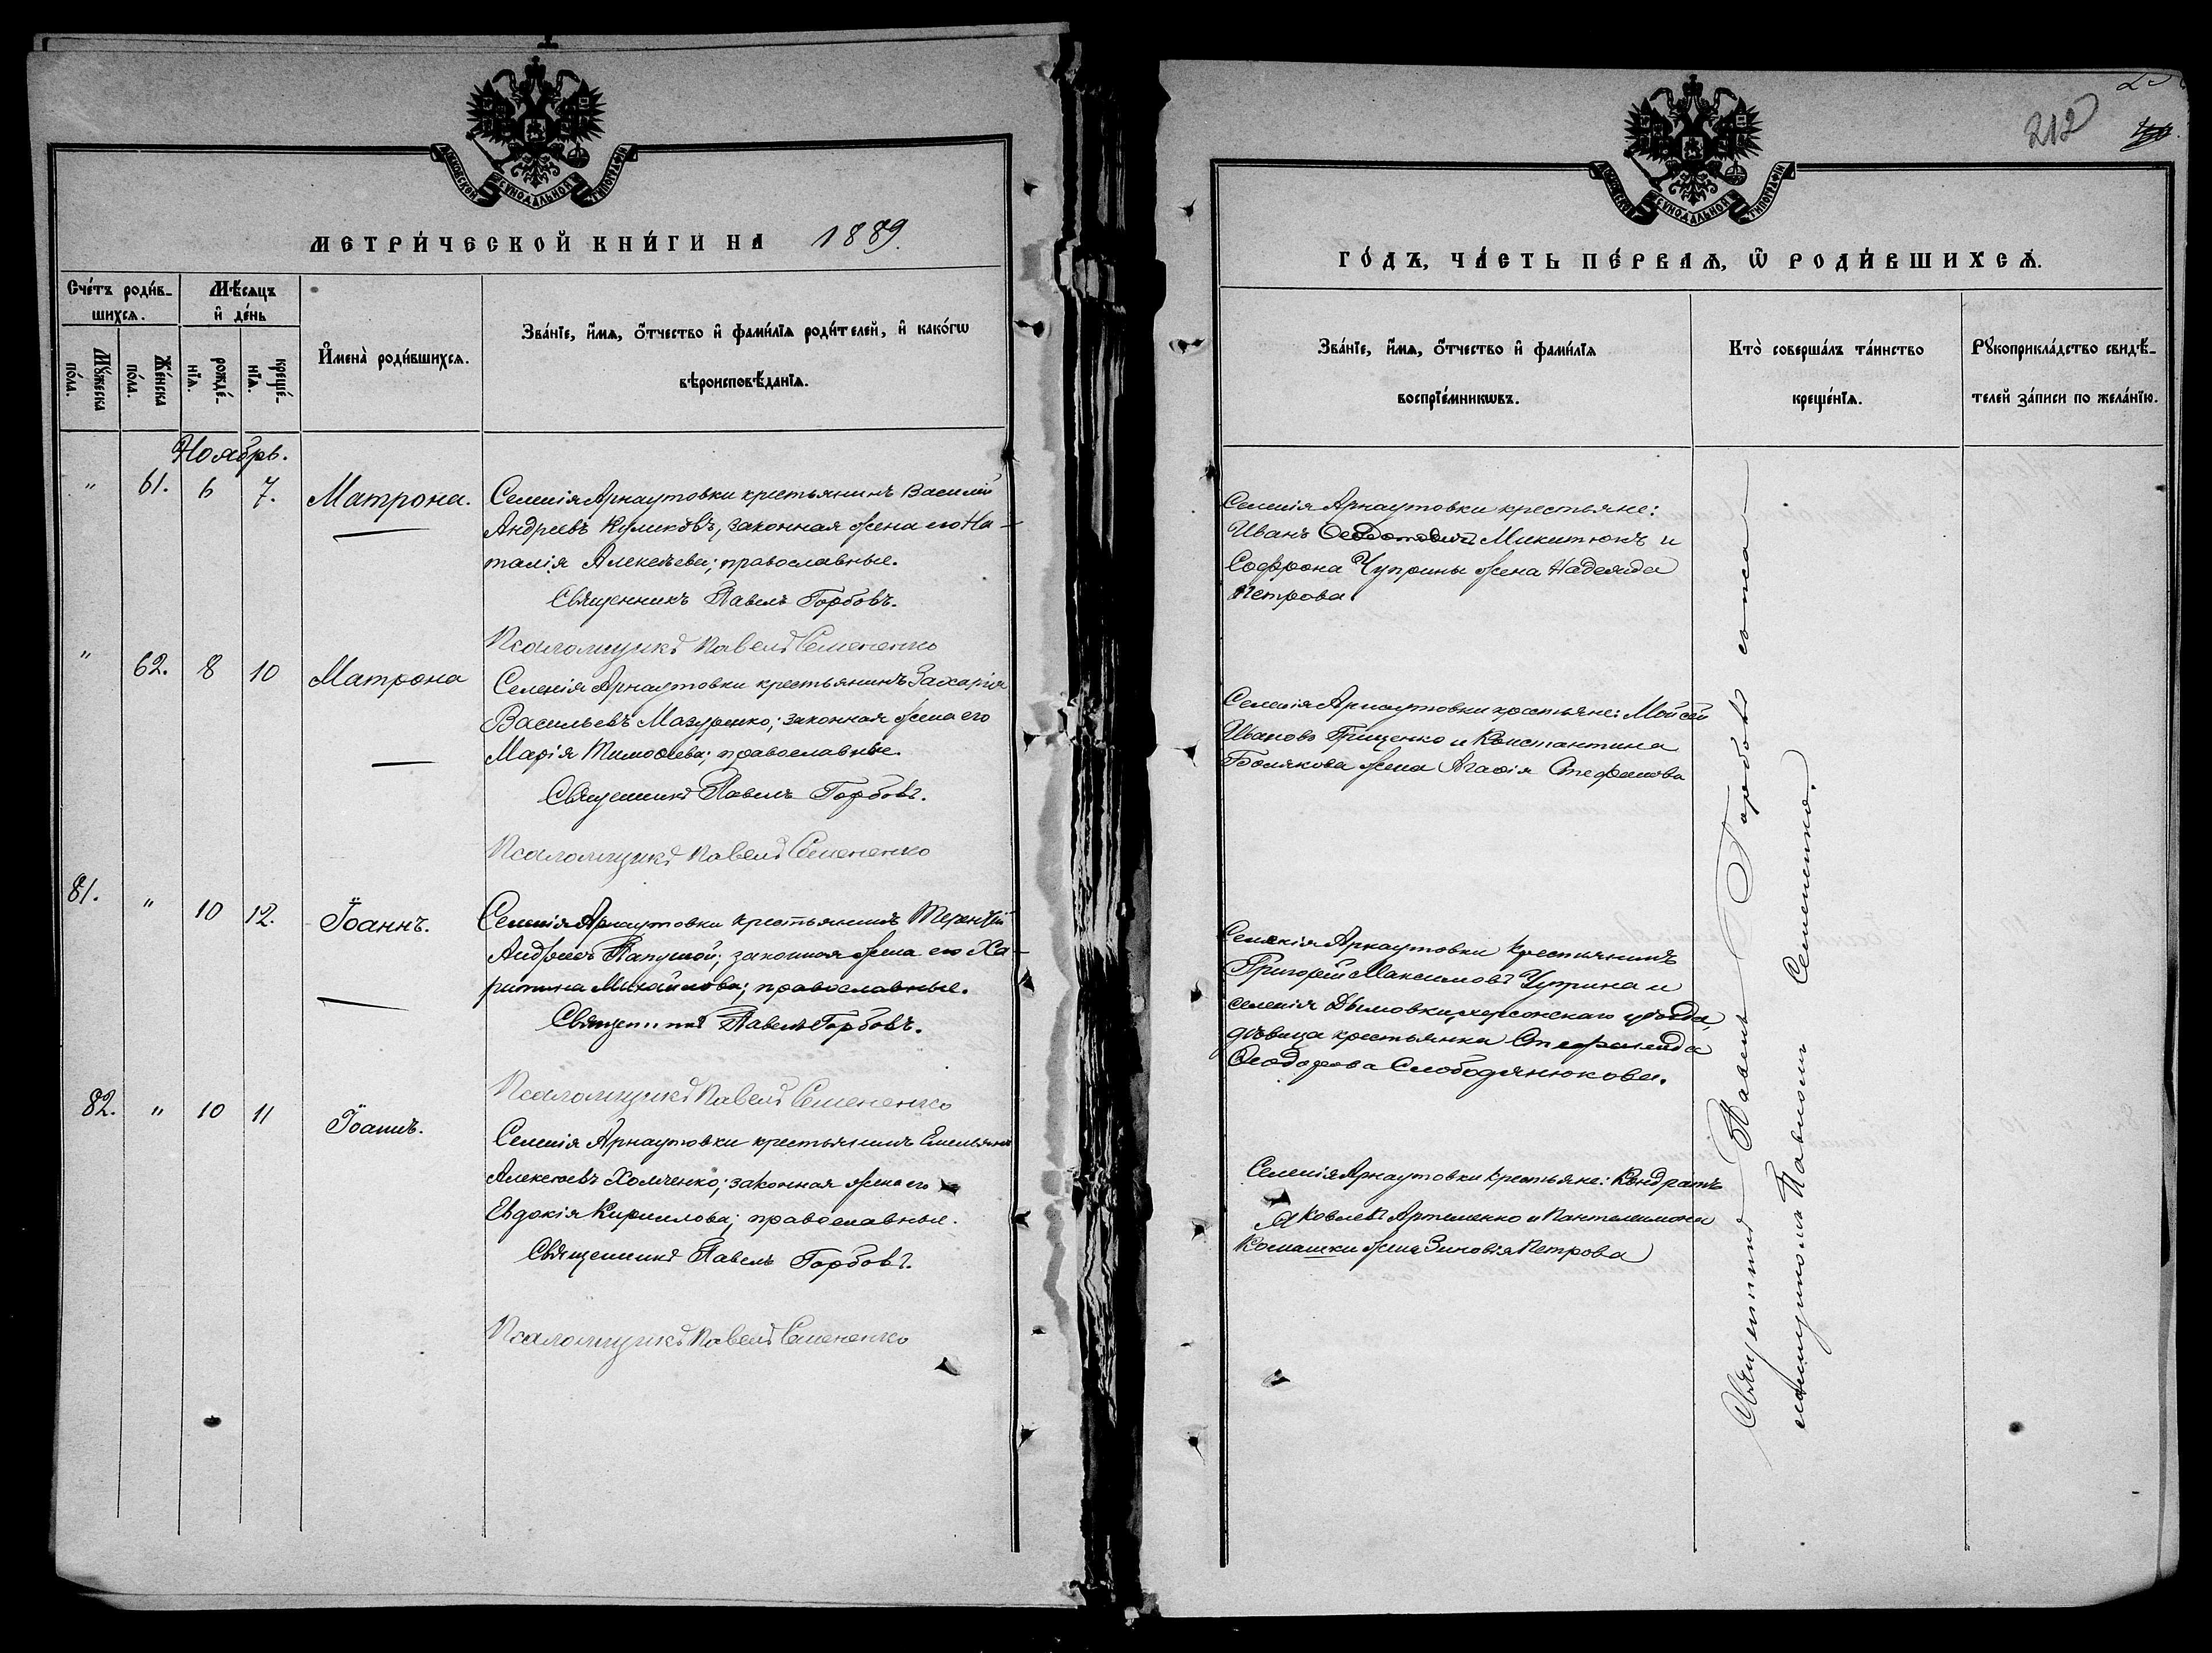 МОСКОВСКОЙ СѴНОДАЛЬНОЙ ТИПОГРАФІИ
МЕТРИ́ЧЕСКОЙ КНИ́ГИ НА 1889.
Сче́тъ роди́в-
шихсѧ.
Мѣ́сѧцъ
и҆ де́нь
Мꙋ́жеска
по́ла.
Же́нска
по́ла.
рожде́-
нїѧ.
креще́-
нїѧ.
И҆мена̀ роди́вшихсѧ.
Зва́нїе, и҆́мѧ, ѻ҆́тчество и҆ фами́лїѧ роди́телей, и҆ како́гѡ
вѣроисповѣ́данїѧ.
Ноябрь.
" 61. 6 7. Матрона.
Селенія Арнаутовки крестьянинъ Василій
Андреевъ Куликовъ, законная жена его На-
талія Алексѣева; православные.
Священникъ Павелъ Горбовъ.
Псаломщикъ Павелъ Семененко
" 62. 8 10 Матрона
Селенія Арнаутовки крестьянинъ Захарія
Васильевъ Мазуренко; законная жена его
Марія Тимоѳеева; православные.
Священникъ Павелъ Горбовъ.
Псаломщикъ Павелъ Семененко
81. " 10 12. Іоаннъ.
Селенія Арнаутовки крестьянинъ Терентій
Андреевъ Папушой; законная жена его Ха-
ритина Михайлова; православные.
Священникъ Павелъ Горбовъ.
Псаломщикъ Павелъ Семененко
82. " 10 11 Іоаннъ.
Селенія Арнаутовки крестьянинъ Емельянъ
Алексѣевъ Хомченко; законная жена его
Евдокія Кириллова; православные.
Священникъ Павелъ Горбовъ.
Псаломщикъ Павелъ Семененко
212
МОСКОВСКОЙ СѴНОДАЛЬНОЙ ТИПОГРАФІИ
ГО́ДЪ, ЧА́СТЬ ПЕ́РВАѦ, Ѡ҆ РОДИ́ВШИХСѦ.
Зва́нїе, и҆́мѧ, ѻ҆́тчество и҆ фами́лїѧ
воспрїе́мникѡвъ.
Кто̀ соверша́лъ та́инство
креще́нїѧ.
Рꙋкоприкла́дство свидѣ́-
телей за́писи по жела́нїю.
Селенія Арнаутовки крестьяне:
Иванъ Микитюкъ и
Софрона Чуприны жена Надежда
Петрова
Селенія Арнаутовки крестьяне: Мойсей
Ивановъ Грищенко и Константина
Болякова жена Агафія Стефанова
Селенія Арнаутовки крестьянинъ
Григорій Максимовъ Чуприна и
селенія Дымовки, херсонскаго уѣзда,
дѣвица крестьянка Стефанида
Ѳеодорова Слободянюкова.
Селенія Арнаутовки крестьяне: Кондратъ
Яковлевъ Артеменко и Пантелеимона
Комашки жена Зиновія Петрова
Священникъ Павелъ Горбовъ съ пса-
ломщикомъ Павломъ Семененко.